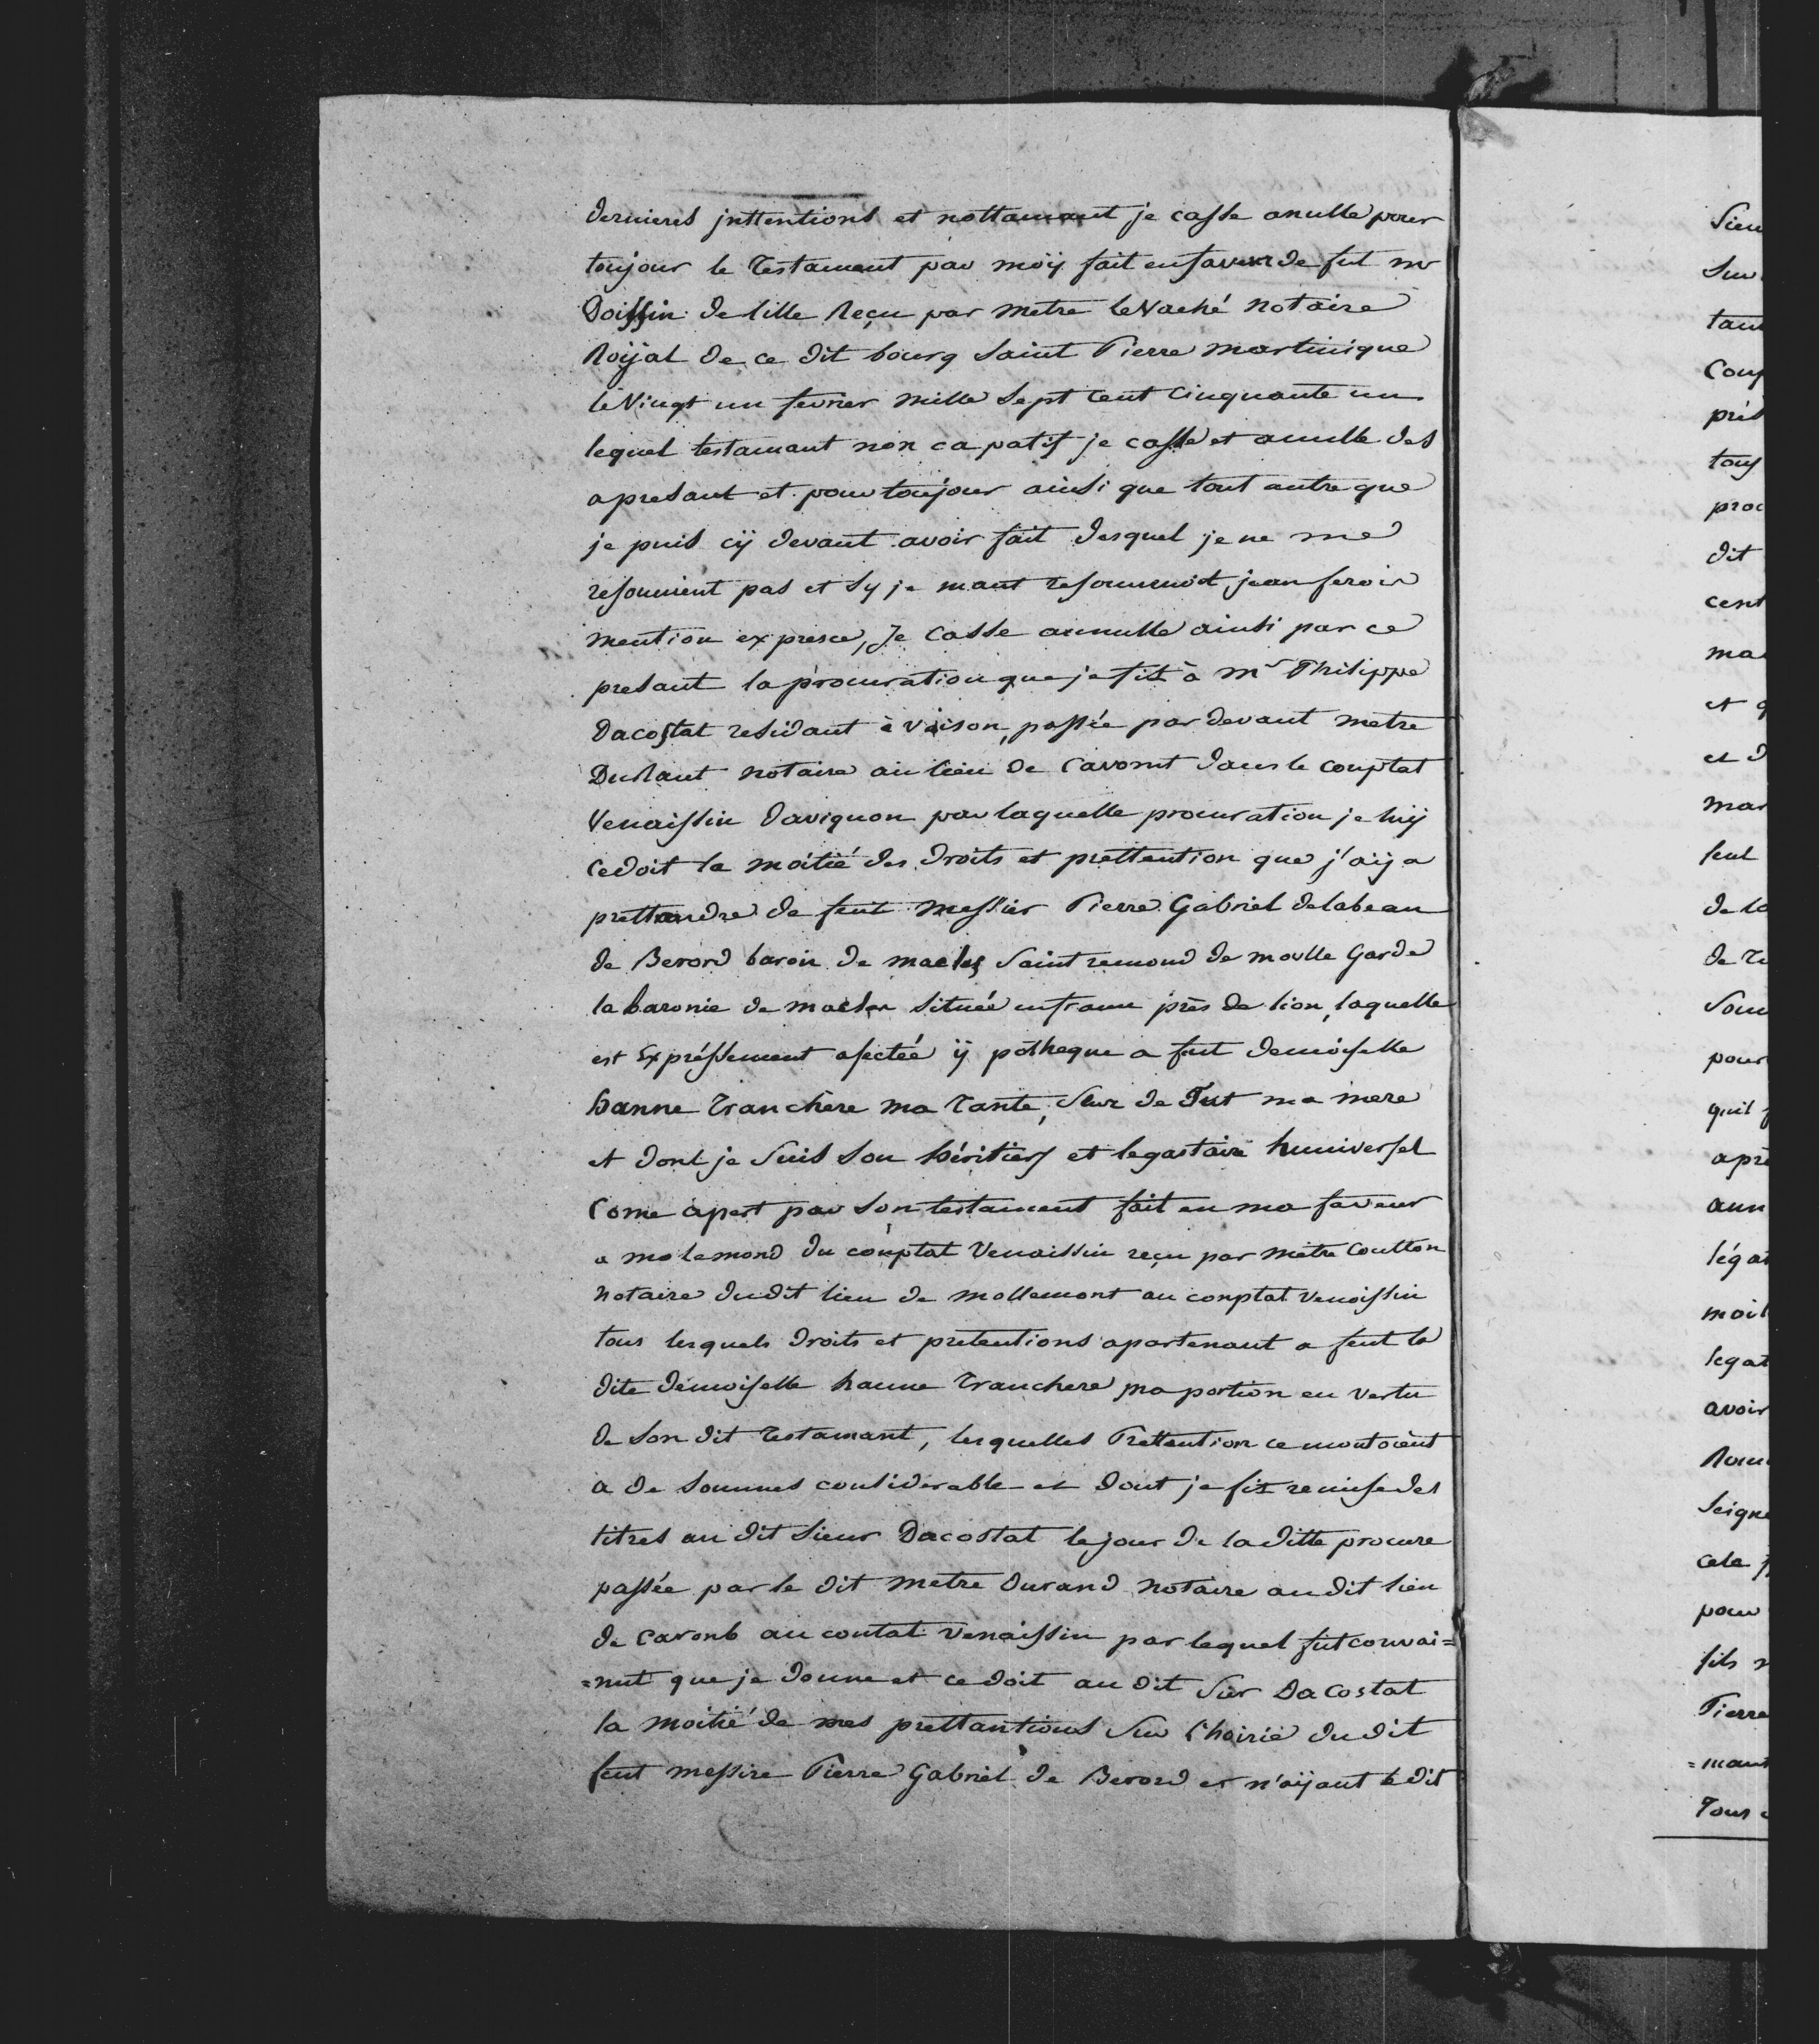 dernieres jnttentions et nottamant je casse anulle pour
toujour le testament par moÿ fait enfaveur de fut mr
Doissin de lille Reçu par metre leVaché notaire
Roÿal de ce dit bourg saint Pierre martinique
le Vingt un fevrier mille sept cent cinquante un
lequel testamant non capatif je casse et anulle des
apresant et pour toujour ainsi que tout autre que
je puis cÿ devant avoir fait desquel je ne me
resouvient pas et sy je mant resouvenoit jean ferois
mention expresce, Je casse annulle ainsi par ce
presant la procuration que je fit à Mr Philippe
Dacostat residant à vaison, passée par devant metre
Durant notaire au lieu de Caromt dans le comptat
Venaissin davignon par laquelle procuration je luÿ
cedoit la moitié des droits et prettention que j'aÿ a
prettandre de feut messier Pierre Gabriel delabeau
de Berord baron de macles saint remond de moulle Garde
la baronie de macler située enfrance près de lion, laquelle
est Expréssement afectée ÿ potheque a fut demoiselle
hanne tranchère ma tante, seur de fut ma mere
et dont je suis son héritier et legataire huniversel
Come apert par son testament fait en ma faveur
a molemond du comptat Venaissin reçu par metre coulton
notaire dudit lieu de mollemont au comptat venaissin
tous lesquels droits et pretentions apartenant a feut la
dite demoiselle hanne tranchere ma portion en vertu
de son dit testamant, lesquelles Prettention ce montoient
a de sommes considerable et dont je fit remise des
titres au dit sieur Dacostat le jour de la ditte procure
passée par le dit metre durand notaire audit lieu
de caronb au contat venaissin par lequel fut convai=
=nut que je donne et cedoit au dit sier Dacostat
la moitié de mes prettantions sur l'hoirié du dit
feut messire Pierre Gabriel de Berord et n'aÿant le dit
sieu
sur
tan
prés
proc
dit
cent
ma
et
et d
mar
feut
de la
de
pour
quil
aprè
ann
légat
legat
avoir
seign
cela
pour
fils
Pierre
=mant
Tous